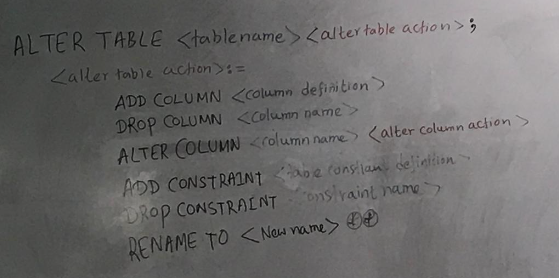 ALTER TABLE <tablename> <alter table action>;
<alter table action>:=
ADD COLUMN <column definition>
DROP COLUMN <column name>
ALTER COLUMN <column name> <alter column action>
ADD CONSTRAINT <table constiant definition>
DROP CONSTRAINT <constraint name>
RENAME TO <New name>